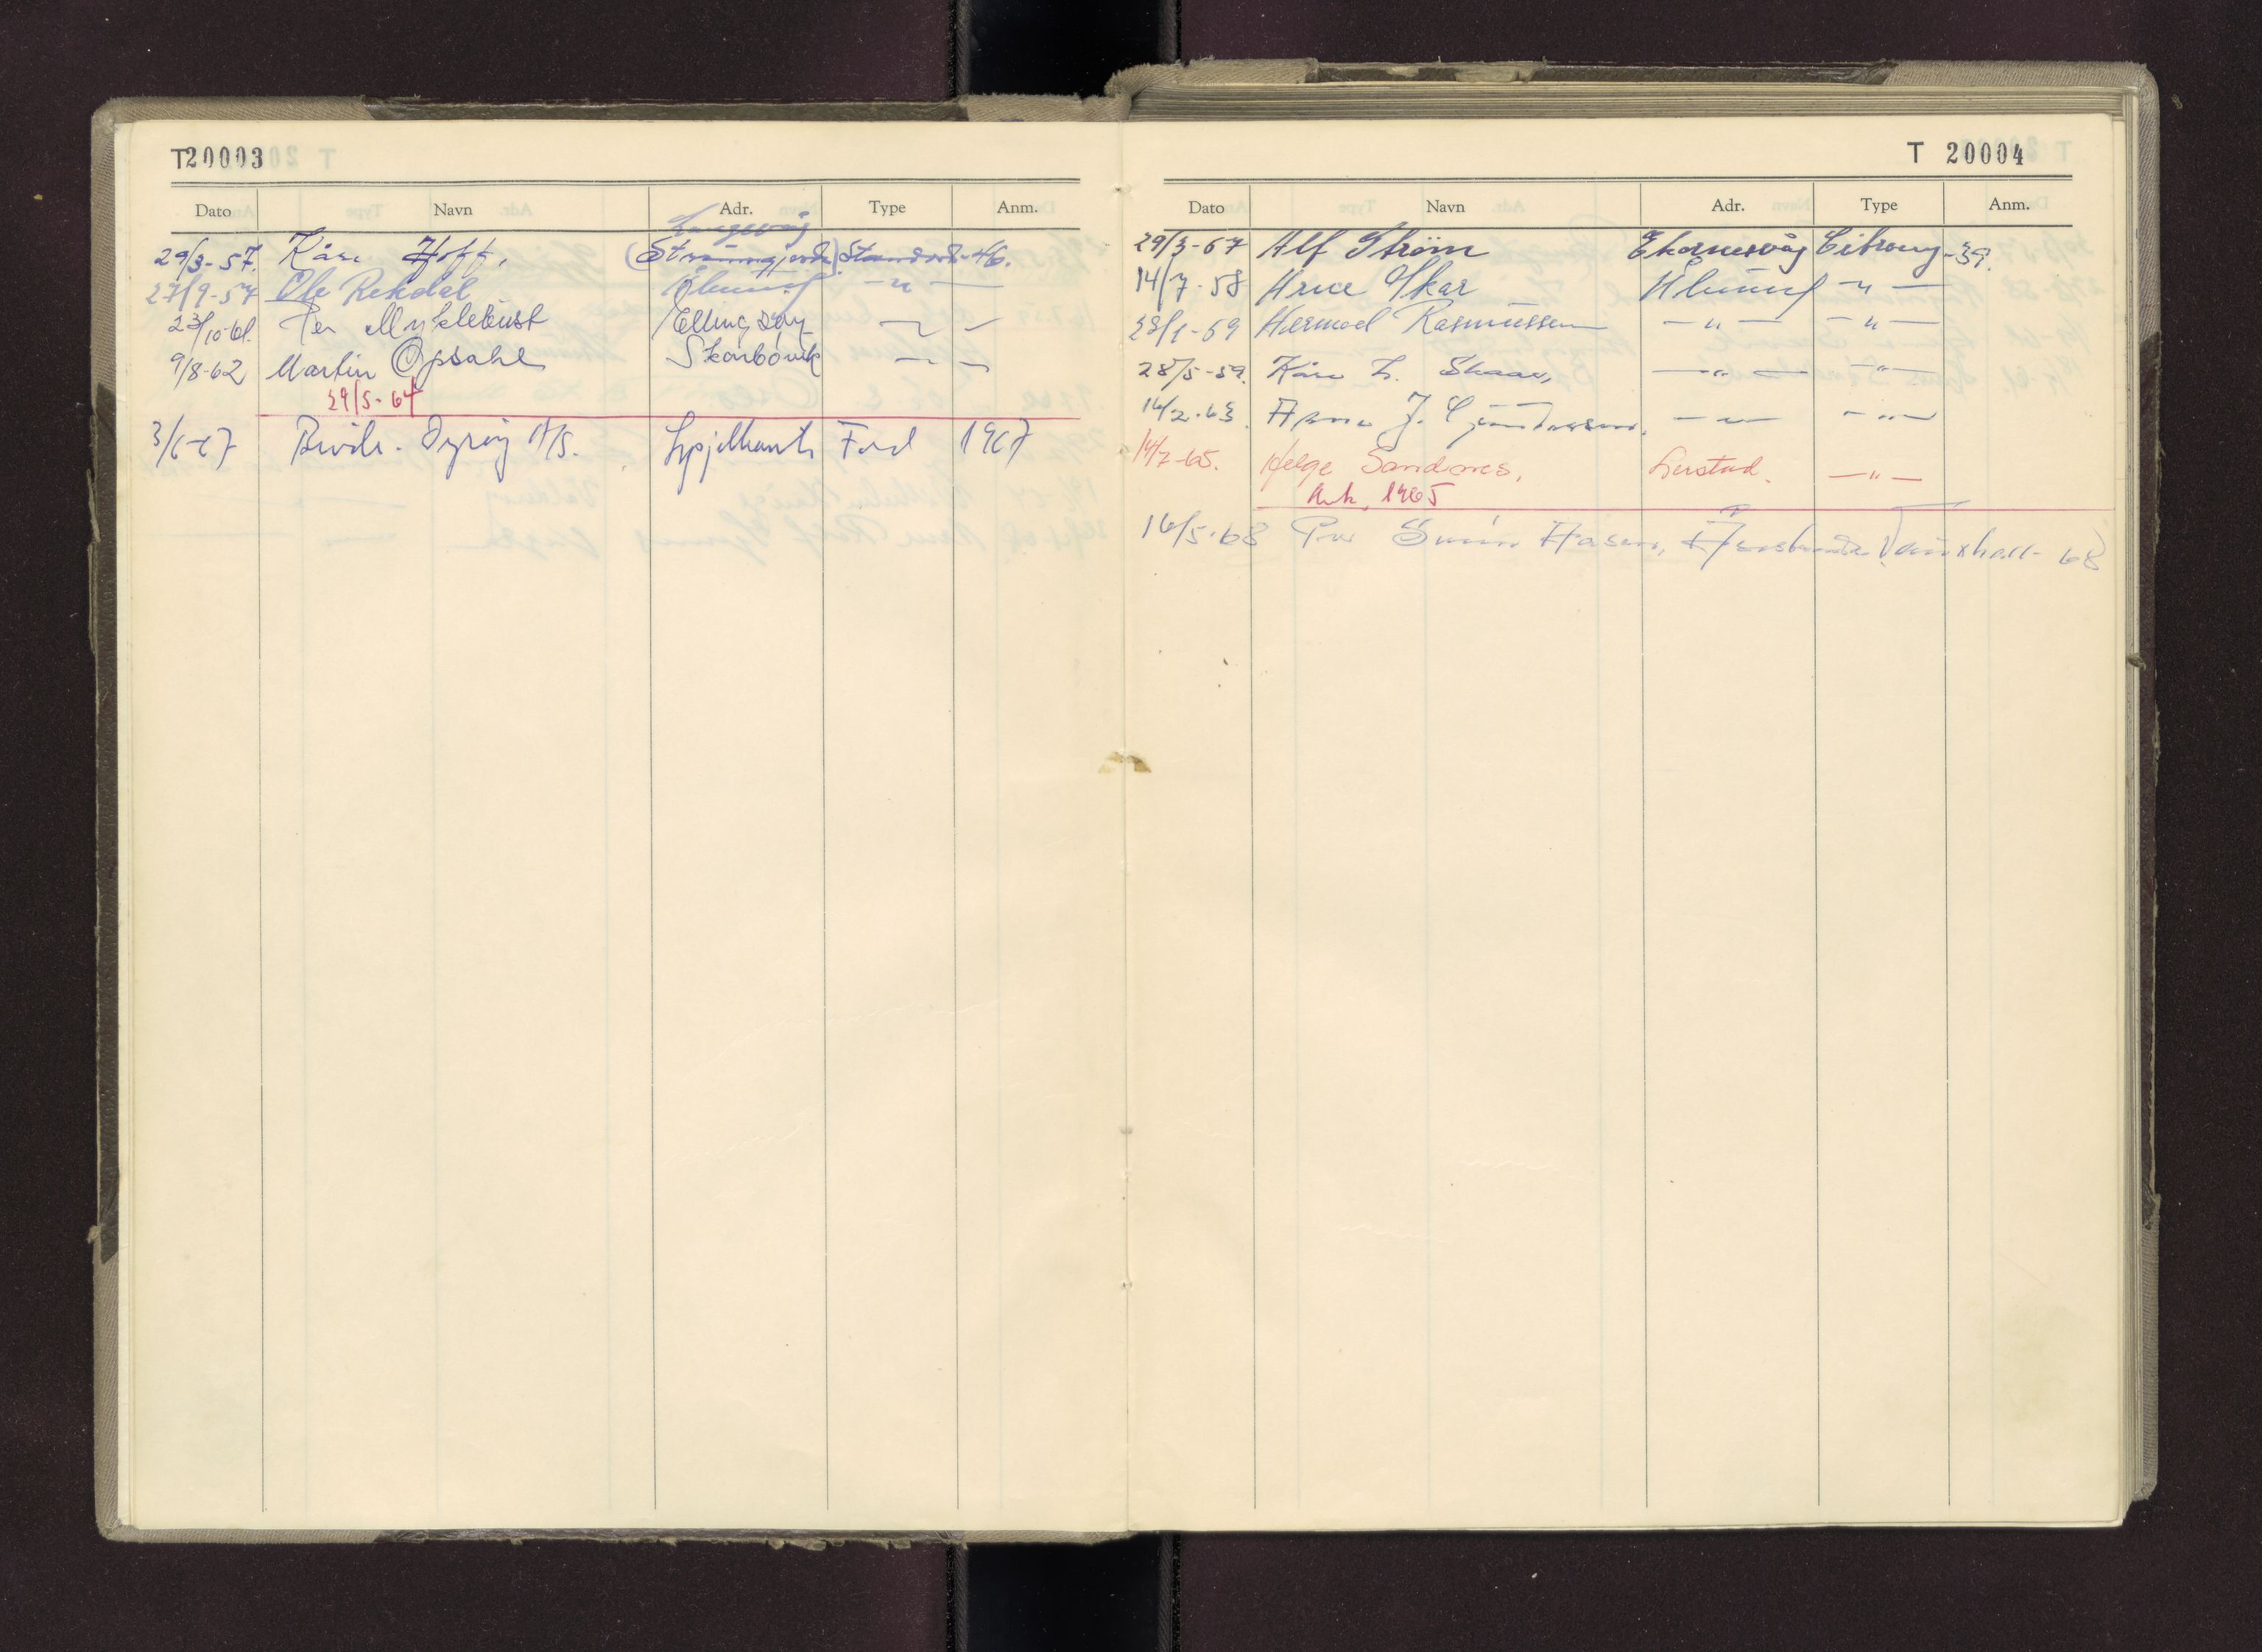 T20003
Dato Navn Adr. Type Anm.
Langevåg
29/3-57. Kåre Hoff, Standard -46.
27/9-57 Ole Rekdal Ålesund — " —
23/10-61. Per Myklebust Ellingsøy
9/8-62 Martin Opsahl
29/5-64
3/6-67 A/S. Spjelkavik Ford 1967
T 20004
Dato Navn Adr. Type Anm.
29/3-57 Alf Strøm Ekornesvåg Citroen -39.
14/7-58 Arne Skar Ålesund — " —
28/1-59 Hermod Rasmussen — " — — " —
28/5-59. Kåre L. — " — — " —
16/2-63. Arne J. — " — — " —
14/7-65. Helge Sandnes, Lerstad. — " —
1965
16/5-68 Per Vauxhall - 68